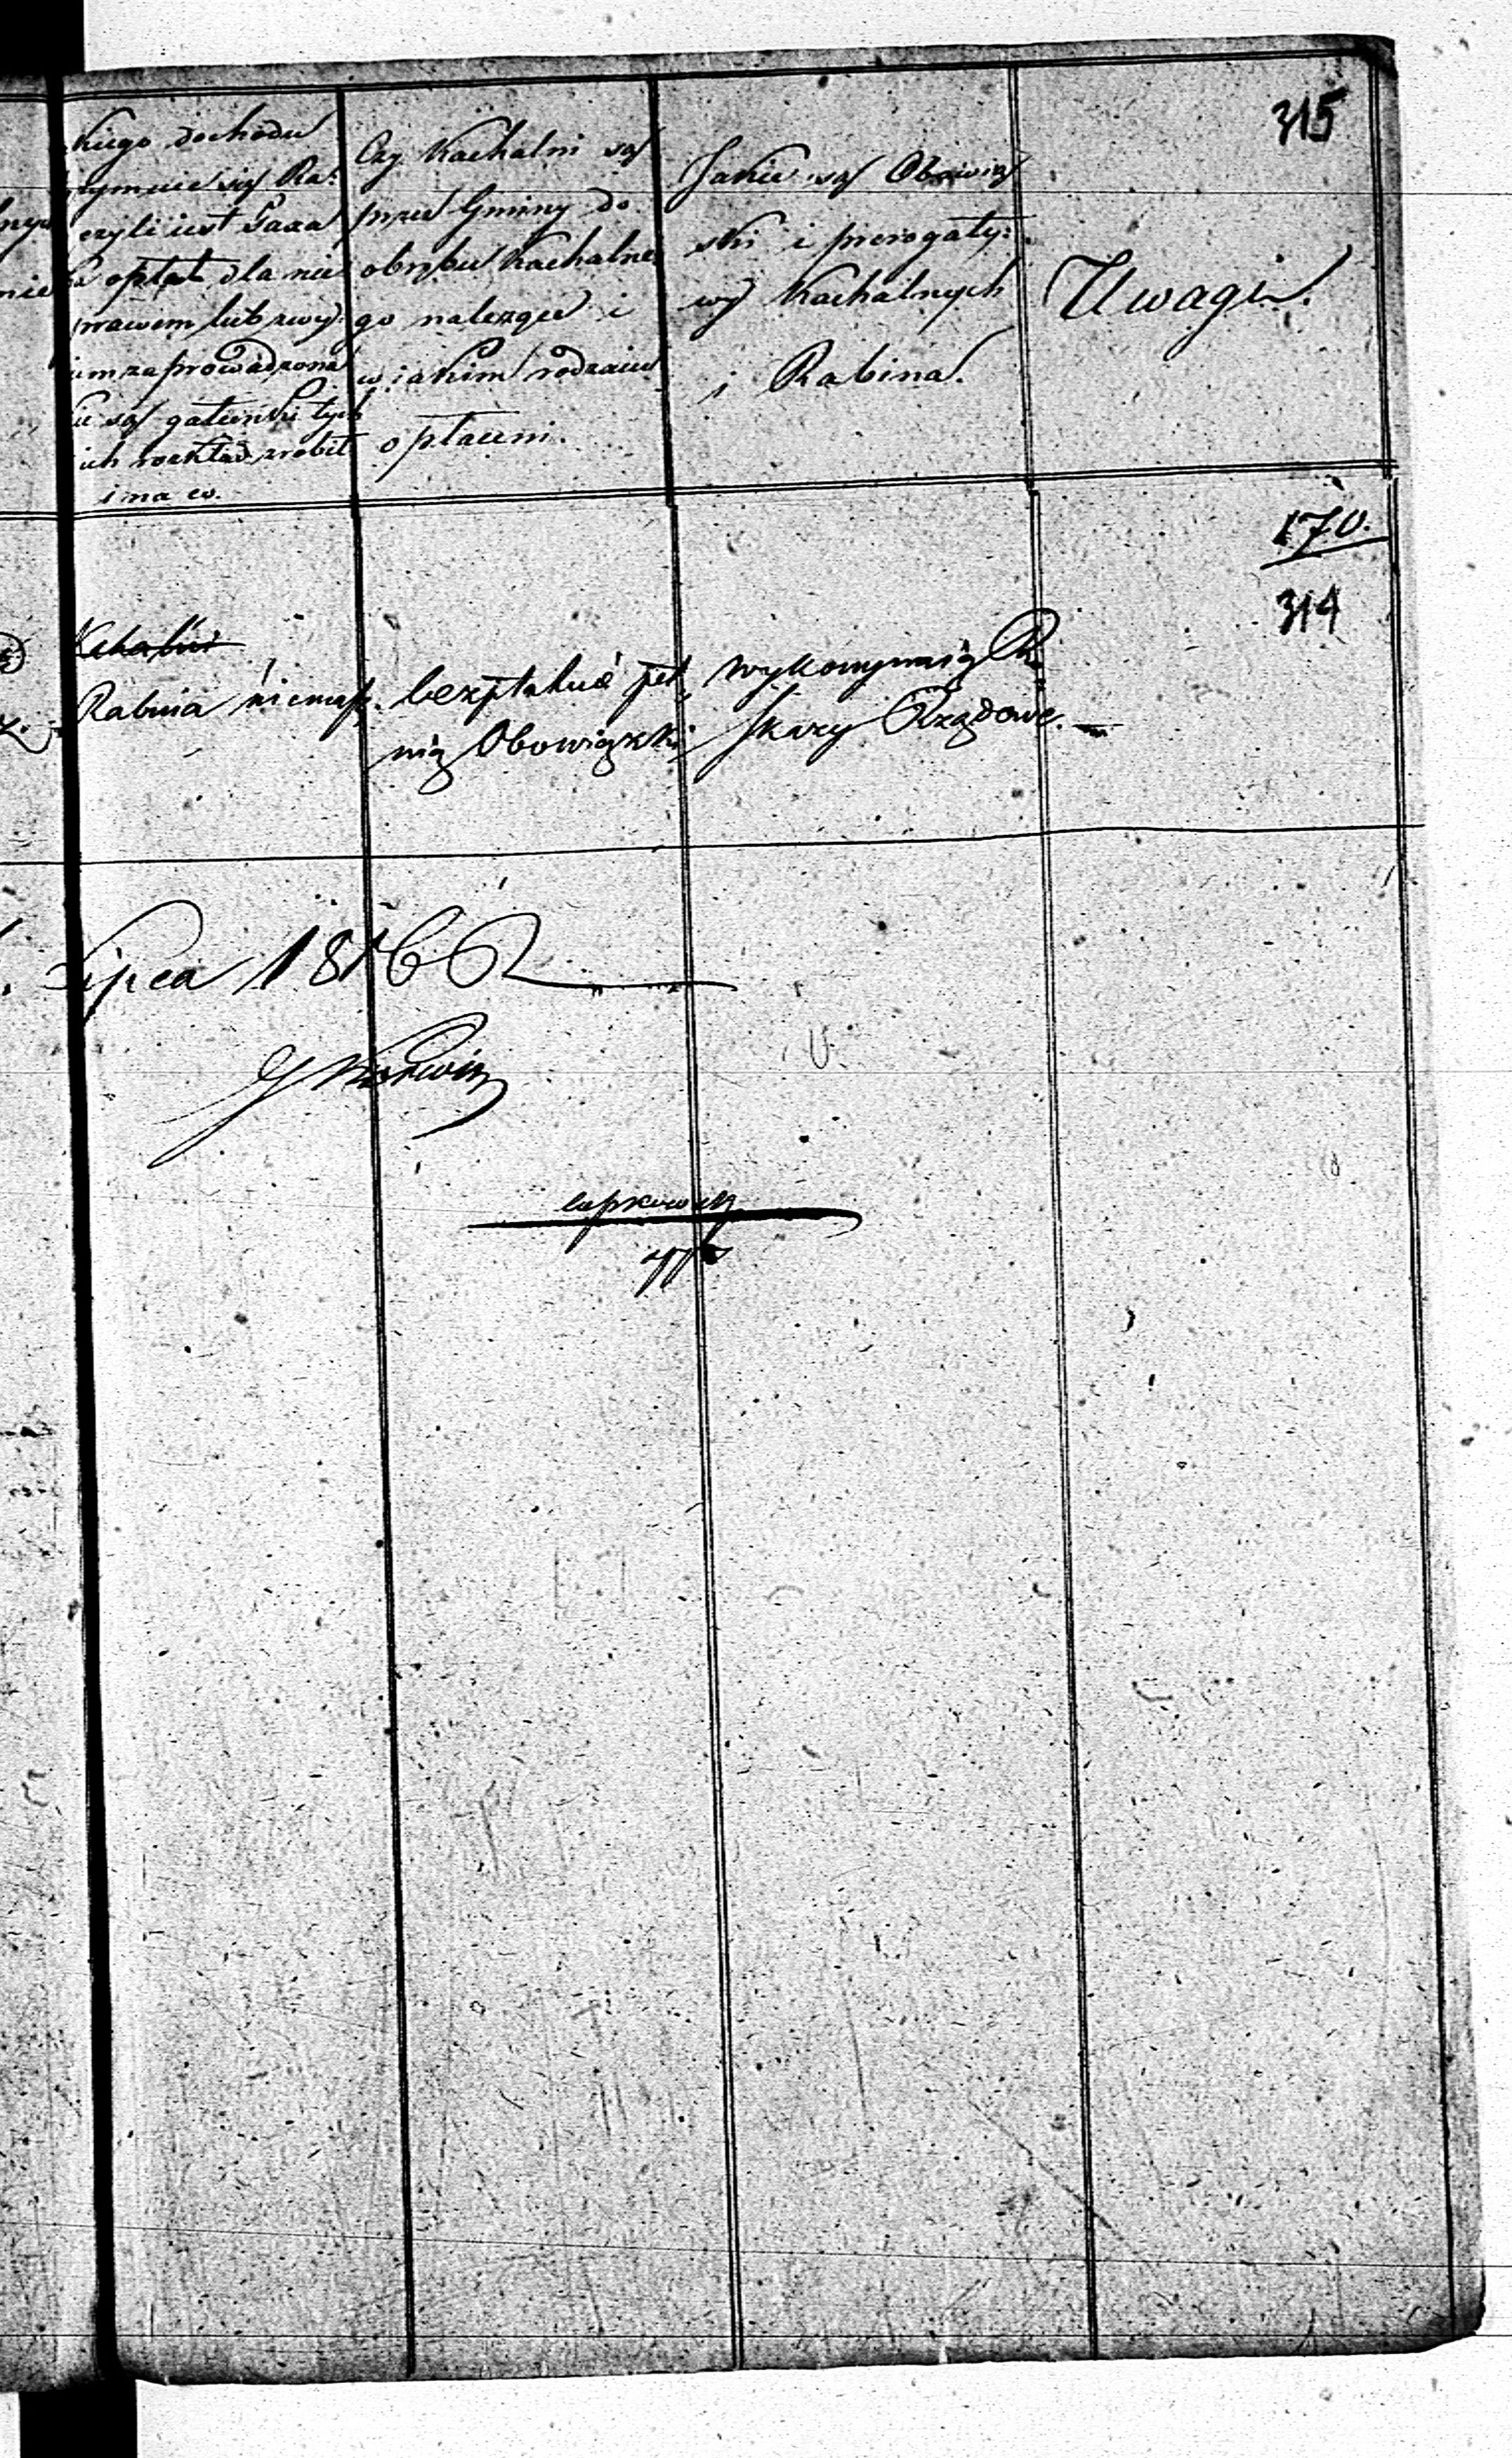 315
kiego dochodu
trzymuie się Ra:
czyli iest Taxa
opłat dla nie
prawem lub zwy
zaprowadzona
są gatunki tych
ich rozkład zrobił
i ma co.
Czy Kachalni są
przez Gminy do
obrębu Kachalne
go należące i
w iakim rodzaiu
opłaceni.
Jakie są Obowiąz
ski i prerogaty:
wy Kachalnych
i Rabina.
Uwagi.
170.
314
Kahalni
Rabina niemasz.
bezpłatnie peł
nią Obowiązki
wykonywaią Ro
skazy Rządowe.
Lipca 1816 R